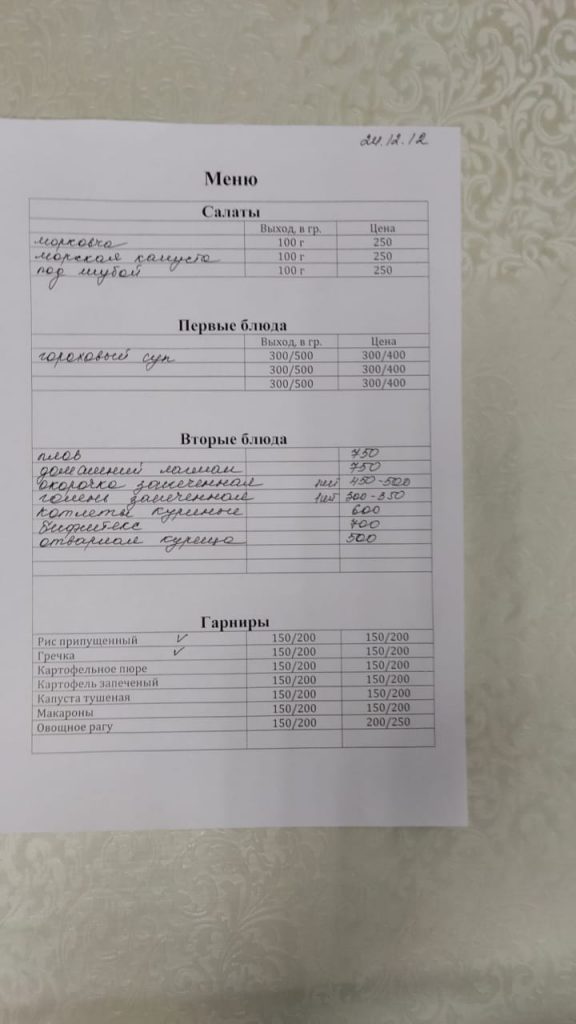 24.12.12
Меню
Салаты
Выход, в гр. Цена
морковча 100 г 250
морская капуста 100 г 250
под шубой 100 г 250
Первые блюда
Выход, в гр. Цена
гороховый суп 300/500 300/400
300/500 300/400
300/500 300/400
Вторые блюда
плов 750
домашний лагман 750
окорочка запеченная 1шт 450-500
голень запеченная 1шт 300-350
котлеты куриные 600
бифштекс 700
отварная курица 500
Гарниры
Рис припущенный ✓ 150/200 150/200
Гречка ✓ 150/200 150/200
Картофельное пюре 150/200 150/200
Картофель запеченый 150/200 150/200
Капуста тушеная 150/200 150/200
Макароны 150/200 150/200
Овощное рагу 150/200 200/250